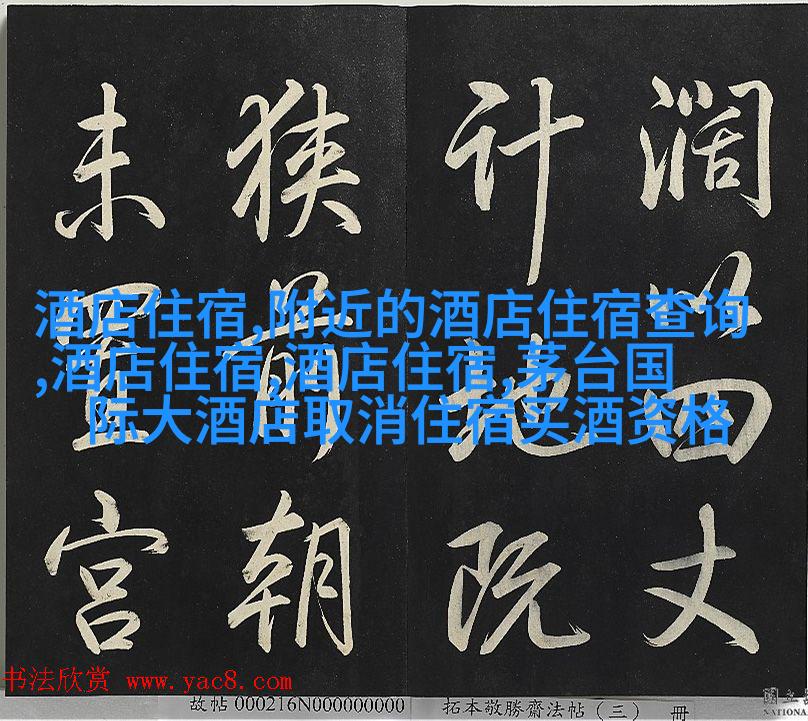 濶以四丈
計地既
狹前朝
未置宫
酒店住宿,附近的酒店住宿查询
,酒店住宿,酒店住宿,茅台国
际大酒店取消住宿买酒资格
书法欣赏 www.yac8.com
故帖 000216N000000000 拓本敬勝齋法帖（三） 冊
國立
NATIONA